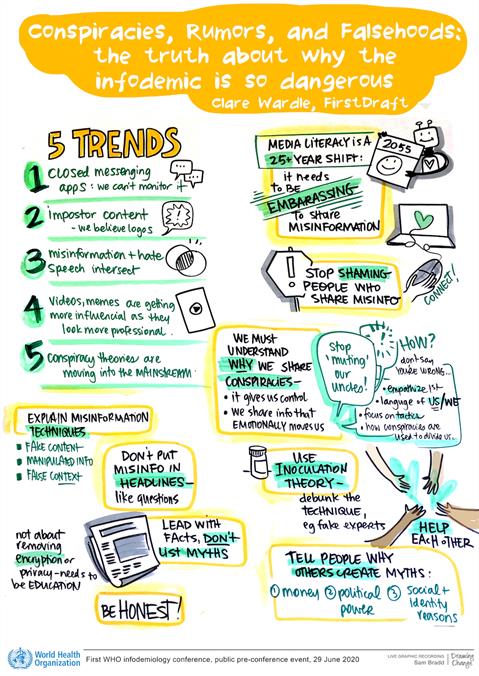 Conspiracies, Rumors, and Falsehoods:
the truth about why the
infodemic is so dangerous
Clare Wardle, FirstDraft
5 TRENDS
1 CLOSED messaging
apps: we can't monitor it
2 impostor content
- we believe logos
3 misinformation + hate
Speech intersect
4 Videos, memes are getting
more influencial as they
look more professional.
5 Conspiracy theories are
moving into the MAINSTREAM
MEDIA LITERACY IS A
25+ YEAR SHIFT:
it needs
to BE
EMBARASSING
to share
MISINFORMATION
2055
STOP SHAMING
PEOPLE WHO
SHARE MISINFO
CONNECT!
WE MUST
UNDERSTAND
WHY WE SHARE
CONSPIRACIES—
• it gives us control
• We share info that
EMOTIONALLY moves us
Stop
'muting'
our
uncles!
HOW?
don't say
YOU'RE WRONG...
• empathize 1st
• language of US/WE
• focus on tactics
• how conspiracies are
used to divide us...
EXPLAIN MISINFORMATION
TECHNIQUES
FAKE CONTENT
MANIPULATED INFO
FALSE CONTEXT
DON'T PUT
MISINFO IN
HEADLINES—
like questions
USE
INOCULATION
THEORY—
debunk the
TECHNIQUE,
eg fake experts
HELP
EACH OTHER
not about
removing
encryption or
privacy-needs to
be EDUCATION
LEAD WITH
FACTS, DON'T
LIST MYTHS
BE HONEST!
TELL PEOPLE WHY
OTHERS CREATE MYTHS:
① money ② political power ③ Social + identity reasons
World Health
Organization
First WHO infodemiology conference, public pre-conference event, 29 June 2020
LIVE GRAPHIC RECORDING
Sam Bradd
Drawing
Change